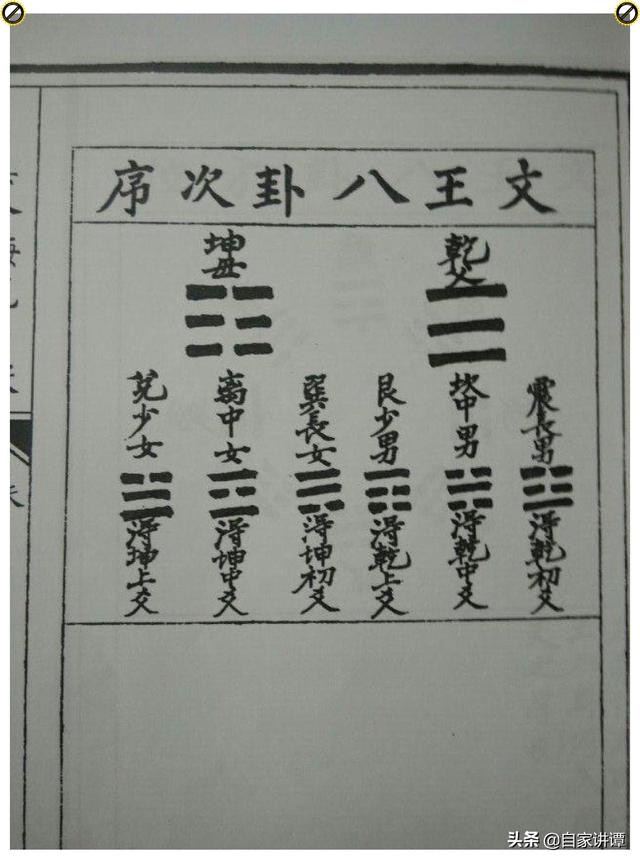 文王八卦次序
乾父
坤母
震長男
坎中男
艮少男
巽長女
离中女
兌少女
得乾初爻
得乾中爻
得乾上爻
得坤初爻
得坤中爻
得坤上爻
头条 @自家讲谭